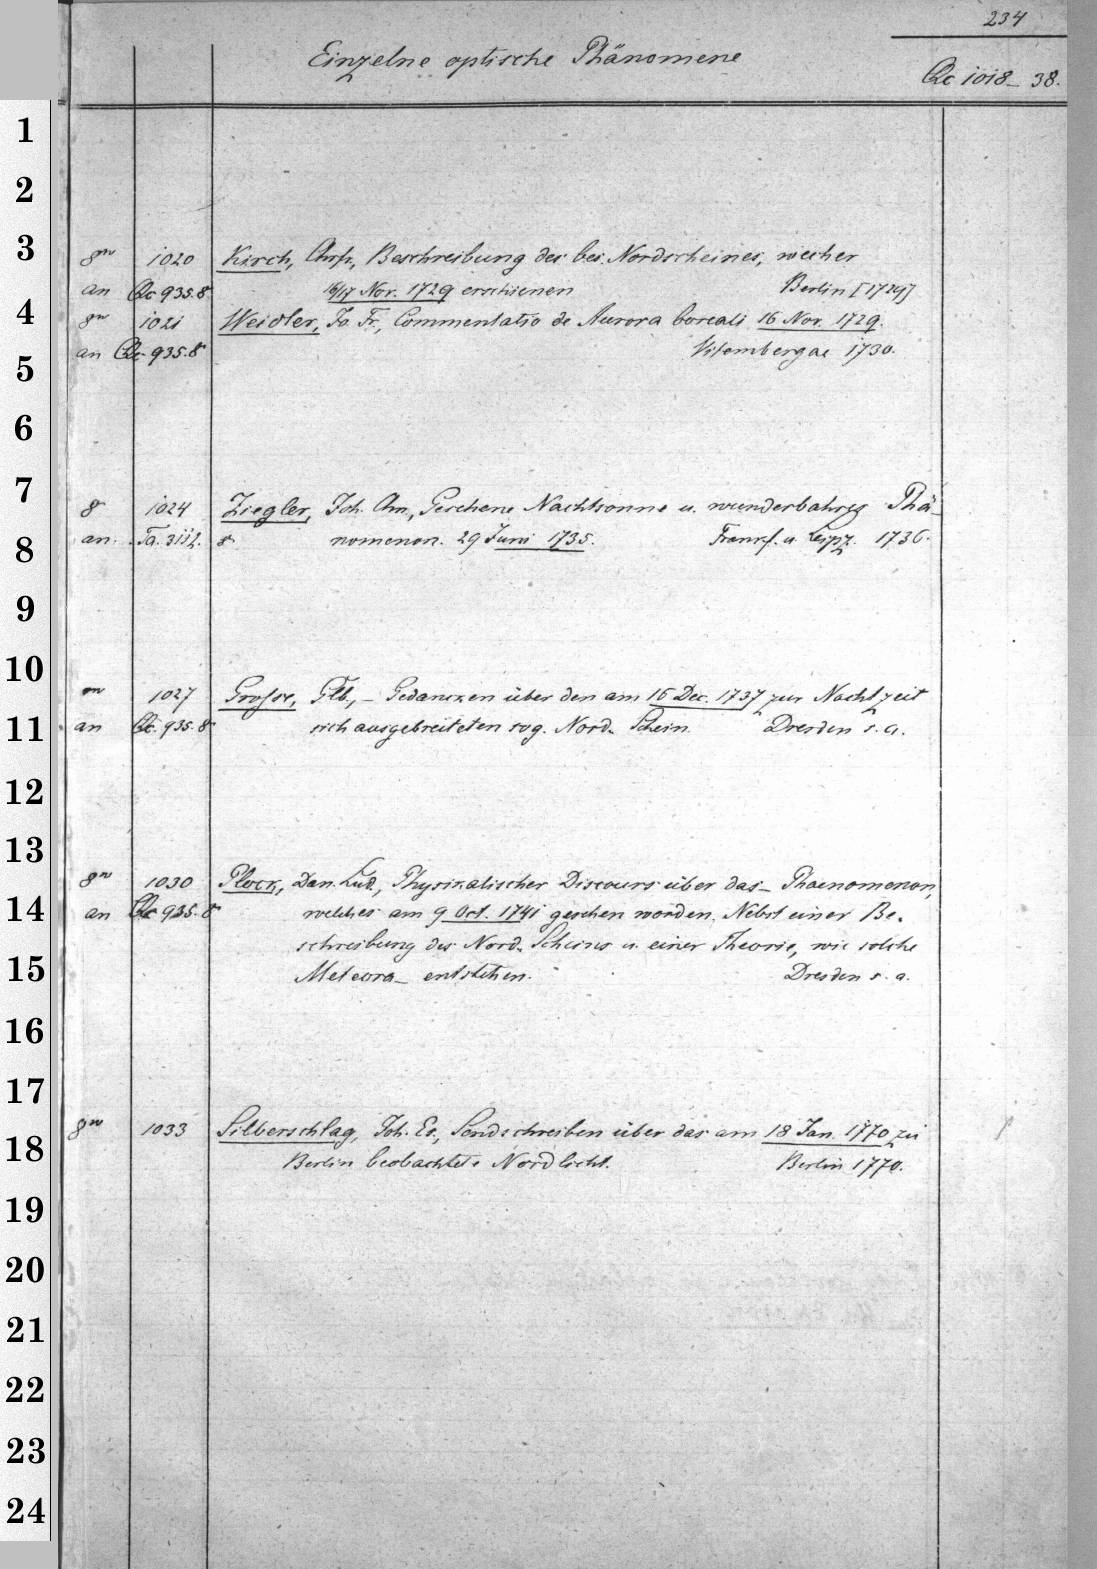 234
Einzelne optische Phänomene
Qc 1018-38.
1
2
3
4
5
6
7
8
9
10
11
12
13
14
15
16
17
18
19
20
21
22
23
24
8vo 1020 Kirch, Chrfr., Beschreibung des bes. Nordscheines, welcher
an Qc 935.8 16/17 Nov. 1729 erschienen Berlin [1729]
8vo 1021 Weidler, Jo. Fr., Commentatio de Aurora boreali 16 Nov. 1729.
an Qc 935.8 Vitembergae 1730.
8 1024 Ziegler, Joh. Chn., Gesehene Nachtsonne u. wunderbahres Phä-
an. Ta. 3112. 8 nomenon. 29 Juni 1735. Frankf. u. Leipz. 1736.
1027 Grosse, Glb., – Gedancken über den am 16 Dec. 1737 zur Nachtzeit
an Qc. 935.8 sich ausgebreiteten sog. Nord-Schein. Dresden s. a.
8vo 1030 Plock, Dan. Lud., Physikalischer Discours über das Phaenomenon,
an Qc 935.8 welches am 9 Oct. 1741 gesehen worden. Nebst einer Be-
schreibung des Nord-Scheins u. einer Theorie, wie solche
Meteora entstehen. Dresden s. a.
8vo 1033 Silberschlag, Joh. Es., Sendschreiben über das am 18 Jan. 1770 zu
Berlin beobachtete Nordlicht. Berlin 1770.